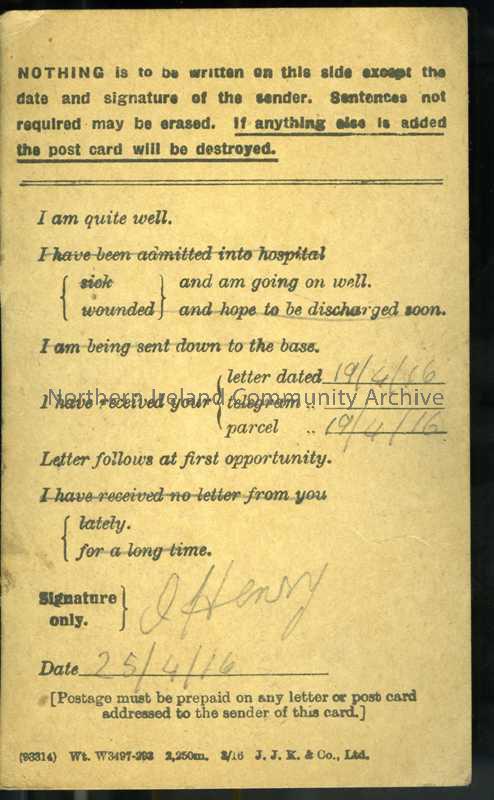 NOTHING is to be written on this side except the
date and signature of the sender. Sentences not
required may be erased. If anything else is added
the post card will be destroyed.
I am quite well.
I have been admitted into hospital
sick and am going on well.
wounded and hope to be discharged soon.
I am being sent down to the base.
letter dated 19/4/16
Northern Ireland Community Archive
I have received your telegram ..
parcel .. 19/4/16
Letter follows at first opportunity.
I have received no letter from you
lately.
for a long time.
Signature
only.
J Henry
Date 25/4/16
[Postage must be prepaid on any letter or post card
addressed to the sender of this card.]
(93314) Wt. W3497-293 2,250m. 3/16 J. J. K. & Co., Ltd.